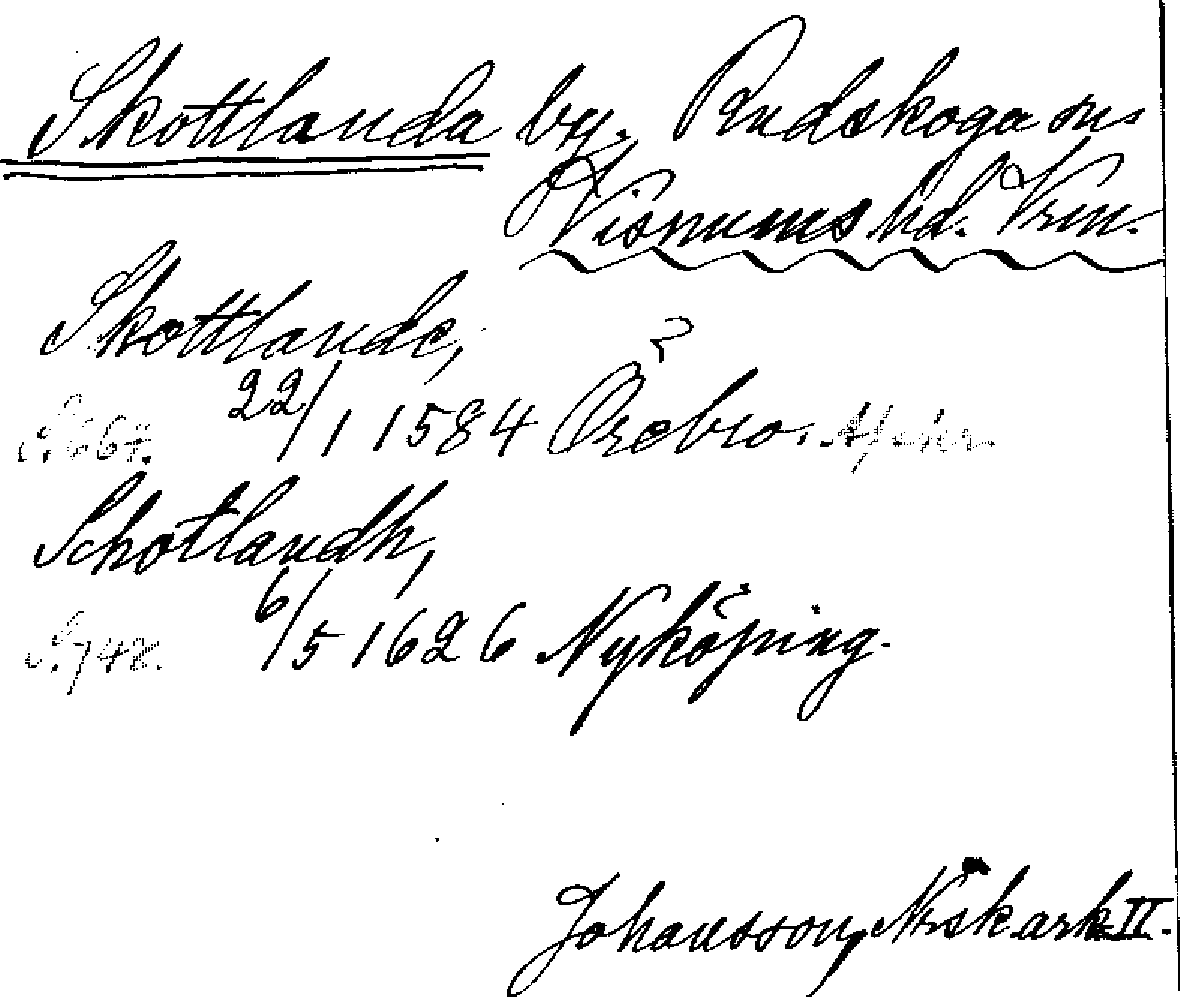 Skottlanda by. Rudskoga sn.
Visnums hd. Vrm.
Skottlande,
S. 667. 22/1 1584 Örebro.
Schotlandh,
S. 748. 6/5 1626 Nyköping.
Johansson, Näskark II.